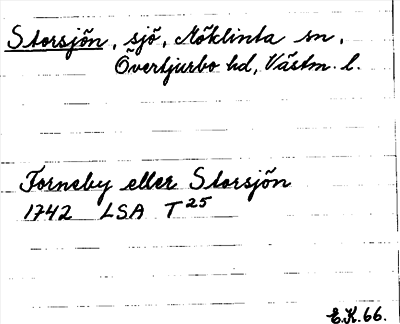 Storsjön, sjö, Möklinta sn,
Övertjurbo hd, Västm. l.
Forneby eller Storsjön
1742 LSA T 25
E.K.66.